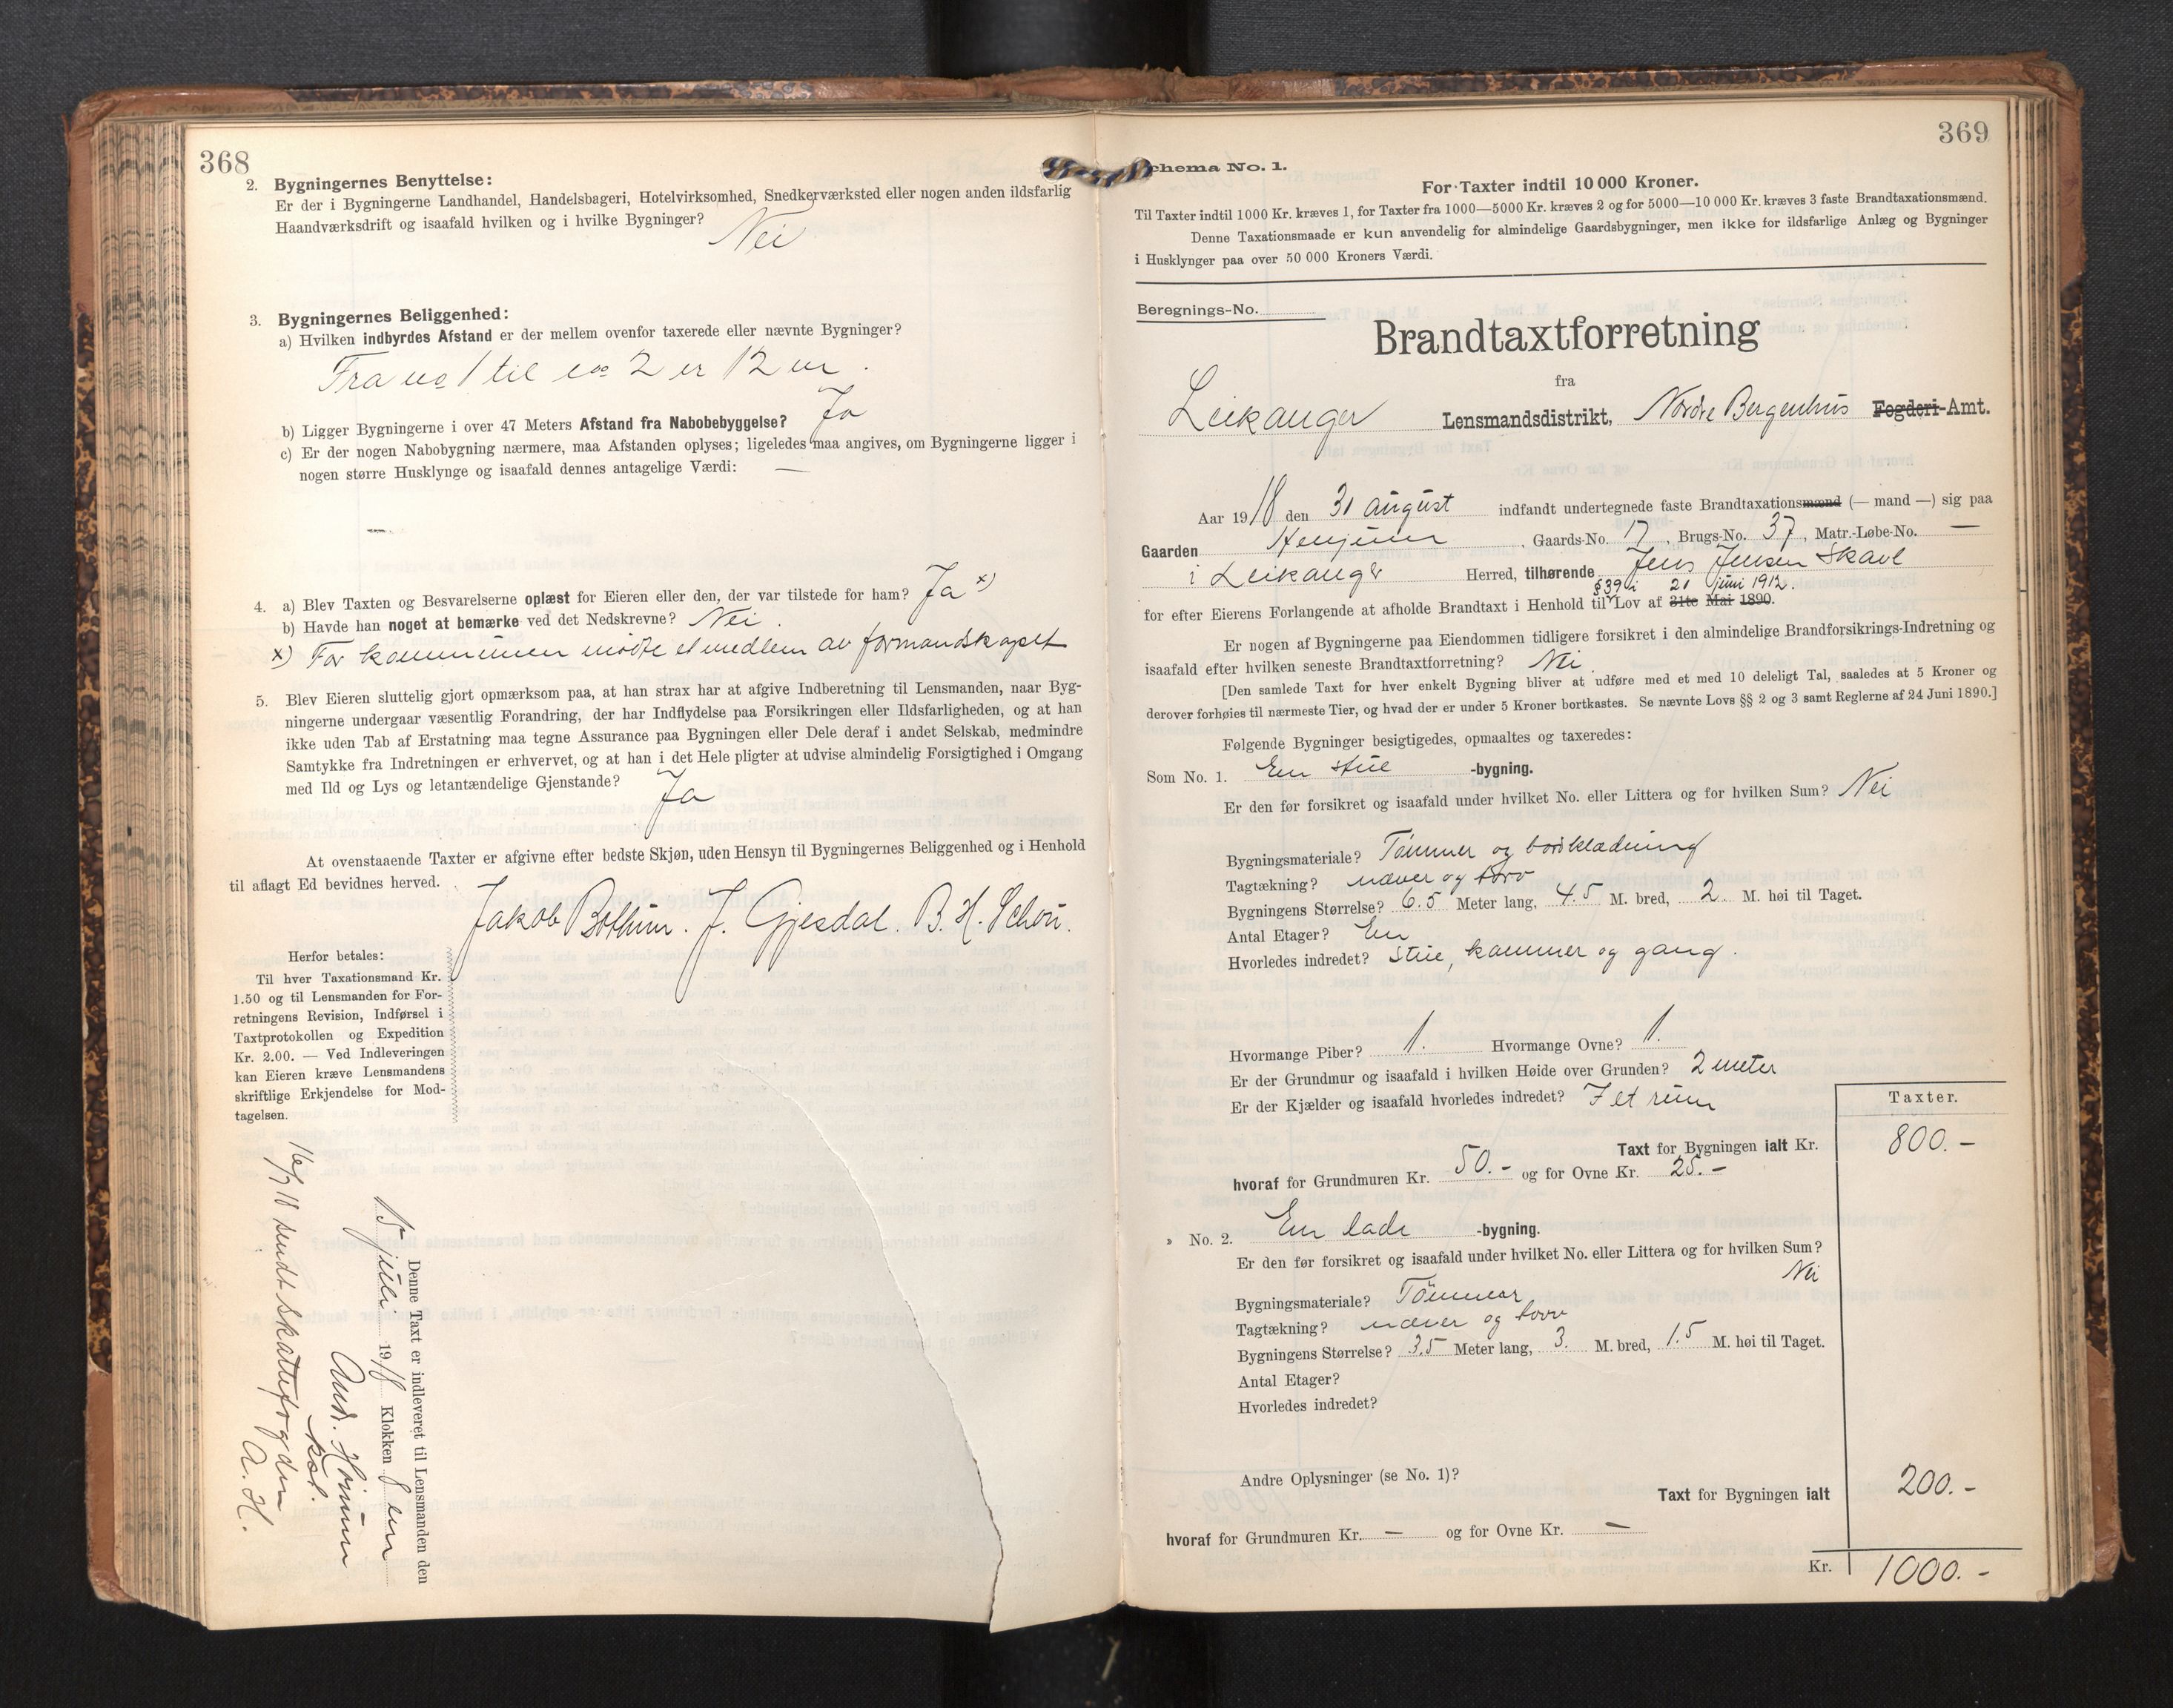 368
2. Bygningernes Benyttelse:
Er der i Bygningerne Landhandel, Handelsbageri, Hotelvirksomhed, Snedkerværksted eller nogen anden ildsfarlig
Haandværksdrift og isaafald hvilken og i hvilke Bygninger? Nei
3. Bygningernes Beliggenhed:
a) Hvilken indbyrdes Afstand er der mellem ovenfor taxerede eller nævnte Bygninger?
Fra no 1 til no 2 er 12 m.
b) Ligger Bygningerne i over 47 Meters Afstand fra Nabobebyggelse? Ja
c) Er der nogen Nabobygning nærmere, maa Afstanden oplyses; ligeledes maa angives, om Bygningerne ligger i
nogen større Husklynge og isaafald dennes antagelige Værdi: —
4. a) Blev Taxten og Besvarelserne oplæst for Eieren eller den, der var tilstede for ham? Ja x)
b) Havde han noget at bemærke ved det Nedskrevne? Nei.
x) For kommunen mødte et medlem av formandskapet
5. Blev Eieren sluttelig gjort opmærksom paa, at han strax har at afgive Indberetning til Lensmanden, naar Byg-
ningerne undergaar væsentlig Forandring, der har Indflydelse paa Forsikringen eller Ildsfarligheden, og at han
ikke uden Tab af Erstatning maa tegne Assurance paa Bygningen eller Dele deraf i andet Selskab, medmindre
Samtykke fra Indretningen er erhvervet, og at han i det Hele pligter at udvise almindelig Forsigtighed i Omgang
med Ild og Lys og letantændelige Gjenstande? Ja
At ovenstaaende Taxter er afgivne efter bedste Skjøn, uden Hensyn til Bygningernes Beliggenhed og i Henhold
til aflagt Ed bevidnes herved.
Jakob Bothun. J. Gjesdal. B. H. Schou.
Herfor betales:
Til hver Taxationsmand Kr.
1.50 og til Lensmanden for For-
retningens Revision, Indførsel i
Taxtprotokollen og Expedition
Kr. 2.00. — Ved Indleveringen
kan Eieren kræve Lensmandens
skriftlige Erkjendelse for Mod-
tagelsen.
Denne Taxt er indleveret til Lensmanden den
15 juli 1918 Klokken 8 em
And. Henjum
kst.
16/7 18 sendt skattefogden
A. H.
369
chema No. 1.
For Taxter indtil 10 000 Kroner.
Til Taxter indtil 1000 Kr. kræves 1, for Taxter fra 1000—5000 Kr. kræves 2 og for 5000—10 000 Kr. kræves 3 faste Brandtaxationsmænd.
Denne Taxationsmaade er kun anvendelig for almindelige Gaardsbygninger, men ikke for ildsfarlige Anlæg og Bygninger
i Husklynger paa over 50 000 Kroners Værdi.
Beregnings-No.
Brandtaxtforretning
fra
Leikanger Lensmandsdistrikt, Nordre Bergenhus Fogderi-Amt.
Aar 1918 den 31 august indfandt undertegnede faste Brandtaxationsmænd (— mand —) sig paa
Gaarden Henjum, Gaards-No. 17, Brugs-No. 37, Matr.-Løbe-No. —
i Leikanger Herred, tilhørende Jens Jensen Skavl
§39 i 21 juni 1912.
for efter Eierens Forlangende at afholde Brandtaxt i Henhold til Lov af 31te Mai 1890.
Er nogen af Bygningerne paa Eiendommen tidligere forsikret i den almindelige Brandforsikrings-Indretning og
isaafald efter hvilken seneste Brandtaxtforretning? Nei.
[Den samlede Taxt for hver enkelt Bygning bliver at udføre med et med 10 deleligt Tal, saaledes at 5 Kroner og
derover forhøies til nærmeste Tier, og hvad der er under 5 Kroner bortkastes. Se nævnte Lovs §§ 2 og 3 samt Reglerne af 24 Juni 1890.]
Følgende Bygninger besigtigedes, opmaaltes og taxeredes:
Som No. 1. En stue -bygning.
Er den før forsikret og isaafald under hvilket No. eller Littera og for hvilken Sum? Nei
Bygningsmateriale? Tømmer og bordklædning
Tagtækning? næver og torv
Bygningens Størrelse? 6.5 Meter lang, 4.5 M. bred, 2 M. høi til Taget.
Antal Etager? En
Hvorledes indredet? Stue, kammer og gang.
Hvormange Piber? 1. Hvormange Ovne? 1.
Er der Grundmur og isaafald i hvilken Høide over Grunden? 2 meter
Er der Kjælder og isaafald hvorledes indredet? I et rum
Taxter.
Taxt for Bygningen ialt Kr. 800.-
hvoraf for Grundmuren Kr. 50.- og for Ovne Kr. 25.-
» No. 2. En lade -bygning.
Er den før forsikret og isaafald under hvilket No. eller Littera og for hvilken Sum?
Nei
Bygningsmateriale? Tømmer
Tagtækning? næver og torv
Bygningens Størrelse? 3.5 Meter lang, 3. M. bred, 1.5 M. høi til Taget.
Antal Etager?
Hvorledes indredet?
Andre Oplysninger (se No. 1)?
Taxt for Bygningen ialt 200.-
hvoraf for Grundmuren Kr. — og for Ovne Kr. —
Kr. 1000.-